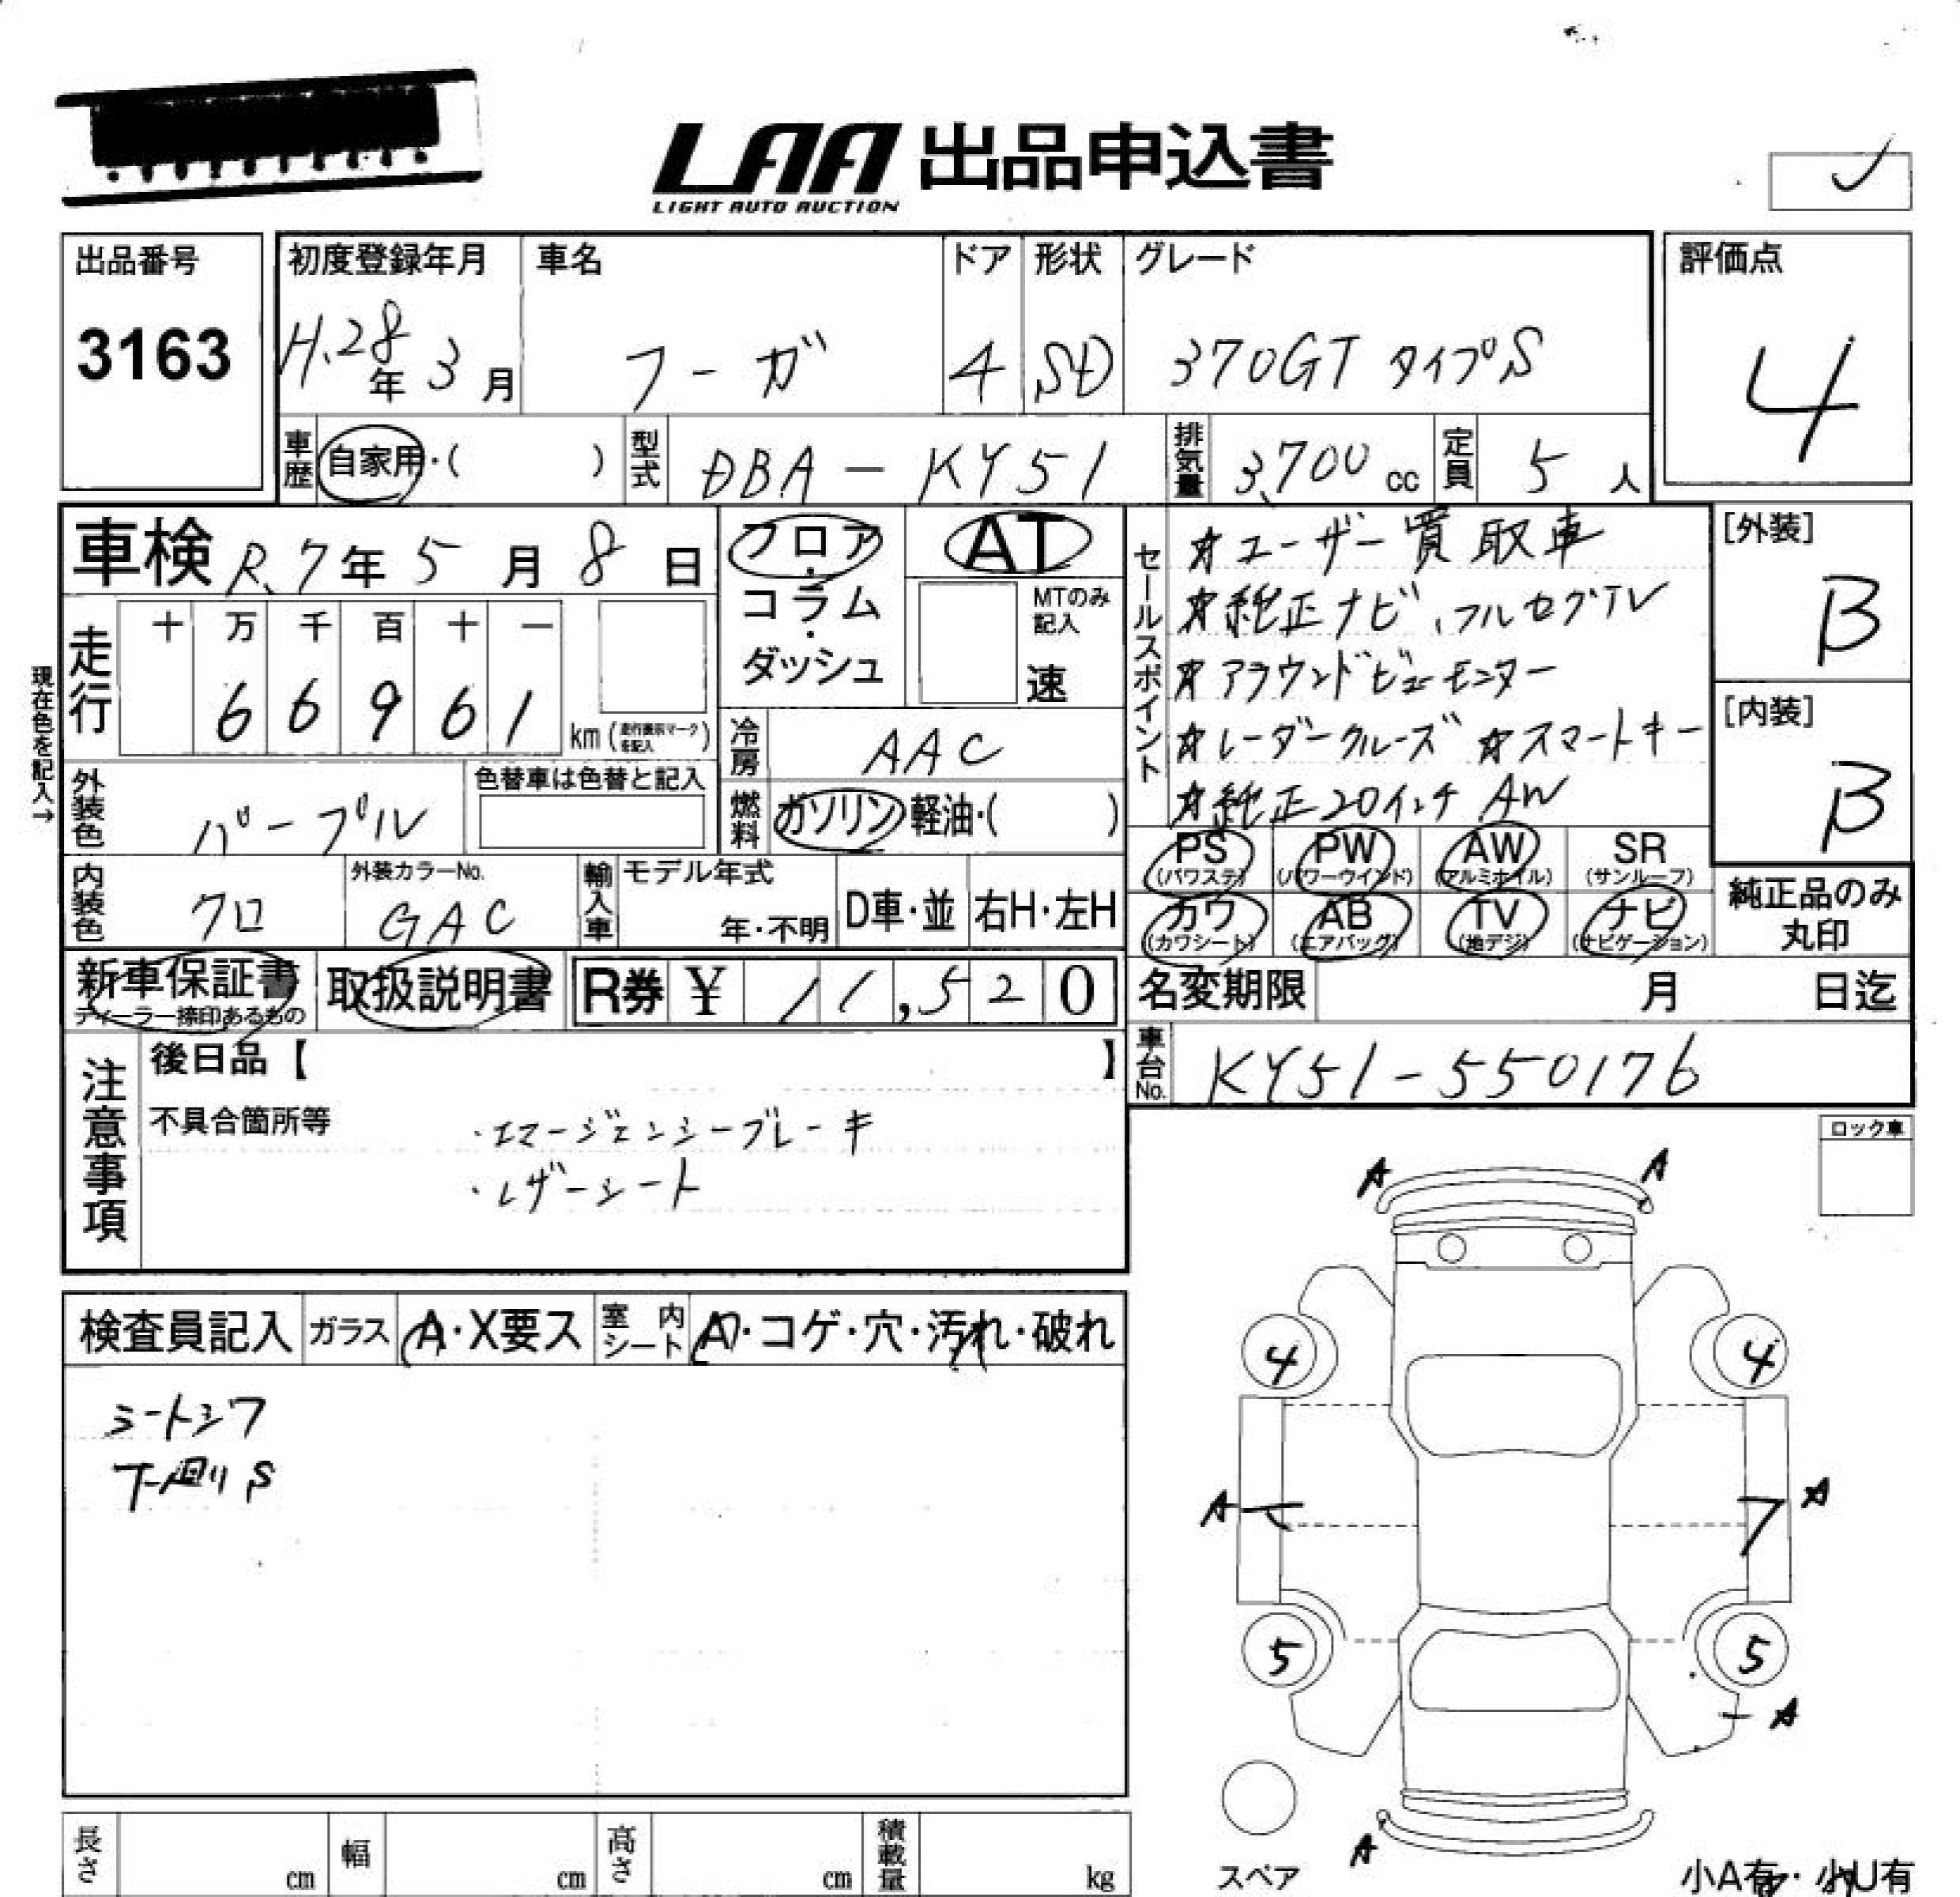 LAA 出品申込書
LIGHT AUTO AUCTION
出品番号
3163
初度登録年月
H.28年 3月
車名
フーガ
ドア
4
形状
SD
グレード
370GT タイプS
評価点
4
車歴 自家用・( )
型式 DBA-KY51
排気量 3,700cc
定員 5人
車検 R.7年5月8日
フロア・コラム・ダッシュ
AT
MTのみ記入
速
セールスポイント
☆ユーザー買取車
☆純正ナビ、フルセグTV
☆アラウンドビューモニター
☆レーダークルーズ ☆スマートキー
☆純正20インチAW
[外装]
B
[内装]
B
現在色を記入→
走行
十 万 千 百 十 一
6 6 9 6 1
km (走行表示マークを記入)
冷房 AAC
外装色 パープル
色替車は色替と記入
燃料 ガソリン 軽油・( )
PS (パワステ) PW (パワーウインド) AW (アルミホイル) SR (サンルーフ)
カワ (カワシート) AB (エアバッグ) TV (地デジ) ナビ (ナビゲーション)
純正品のみ丸印
内装色 クロ
外装カラーNo. GAC
輸入車 モデル年式 年・不明 D車・並 右H・左H
新車保証書
ディーラー捺印あるもの
取扱説明書
R券 ¥ 11,520
名変期限 月 日迄
車台No. KY51-550176
注意事項
後日品【 】
不具合箇所等
・エマージェンシーブレーキ
・レザーシート
ロック車
検査員記入 ガラス A・X要ス 室内シート ・コゲ・穴・汚れ・破れ
シートシワ
下廻りS
A A
4 4
A A
5 5
A
A
スペア
小A有・小U有
長さ cm 幅 cm 高さ cm 積載量 kg